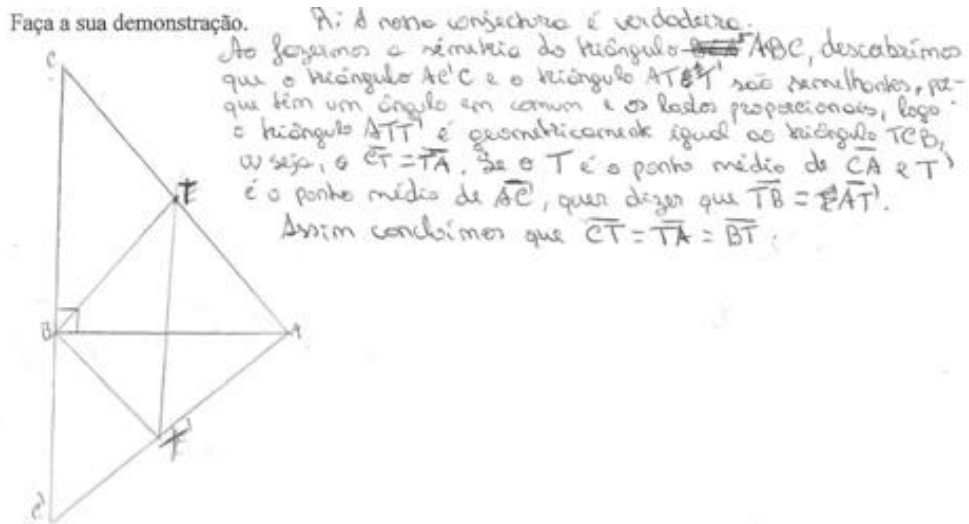 Faça a sua demonstração.
R: A nossa conjectura é verdadeira.
Ao fazermos a simetria do triângulo ABC, descobrimos
que o triângulo AC'C e o triângulo ATT' são semelhantes, por-
que têm um ângulo em comum e os lados proporcionais, logo
o triângulo ATT' é geometricamente igual ao triângulo TCB,
ou seja, o CT = TA. Se o T é o ponto médio de CA e T'
é o ponto médio de AC', quer dizer que TB = AT'.
Assim concluímos que CT = TA = BT.
C
T
B
A
T'
C'